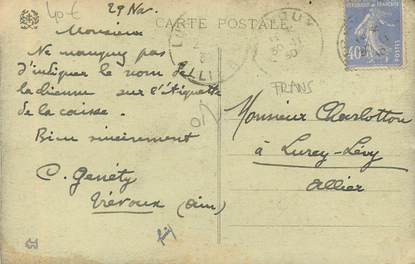 40€
29 Nov.
CARTE POSTALE
Monsieur
Ne manquez pas
d'indiquer le nom de
la chienne sur l'étiquette
de la caisse.
Bien sincèrement
C. Genéty
Trévoux (Ain)
TRANS
Monsieur Charlotton
à Lurcy-Lévy
Allier
40c